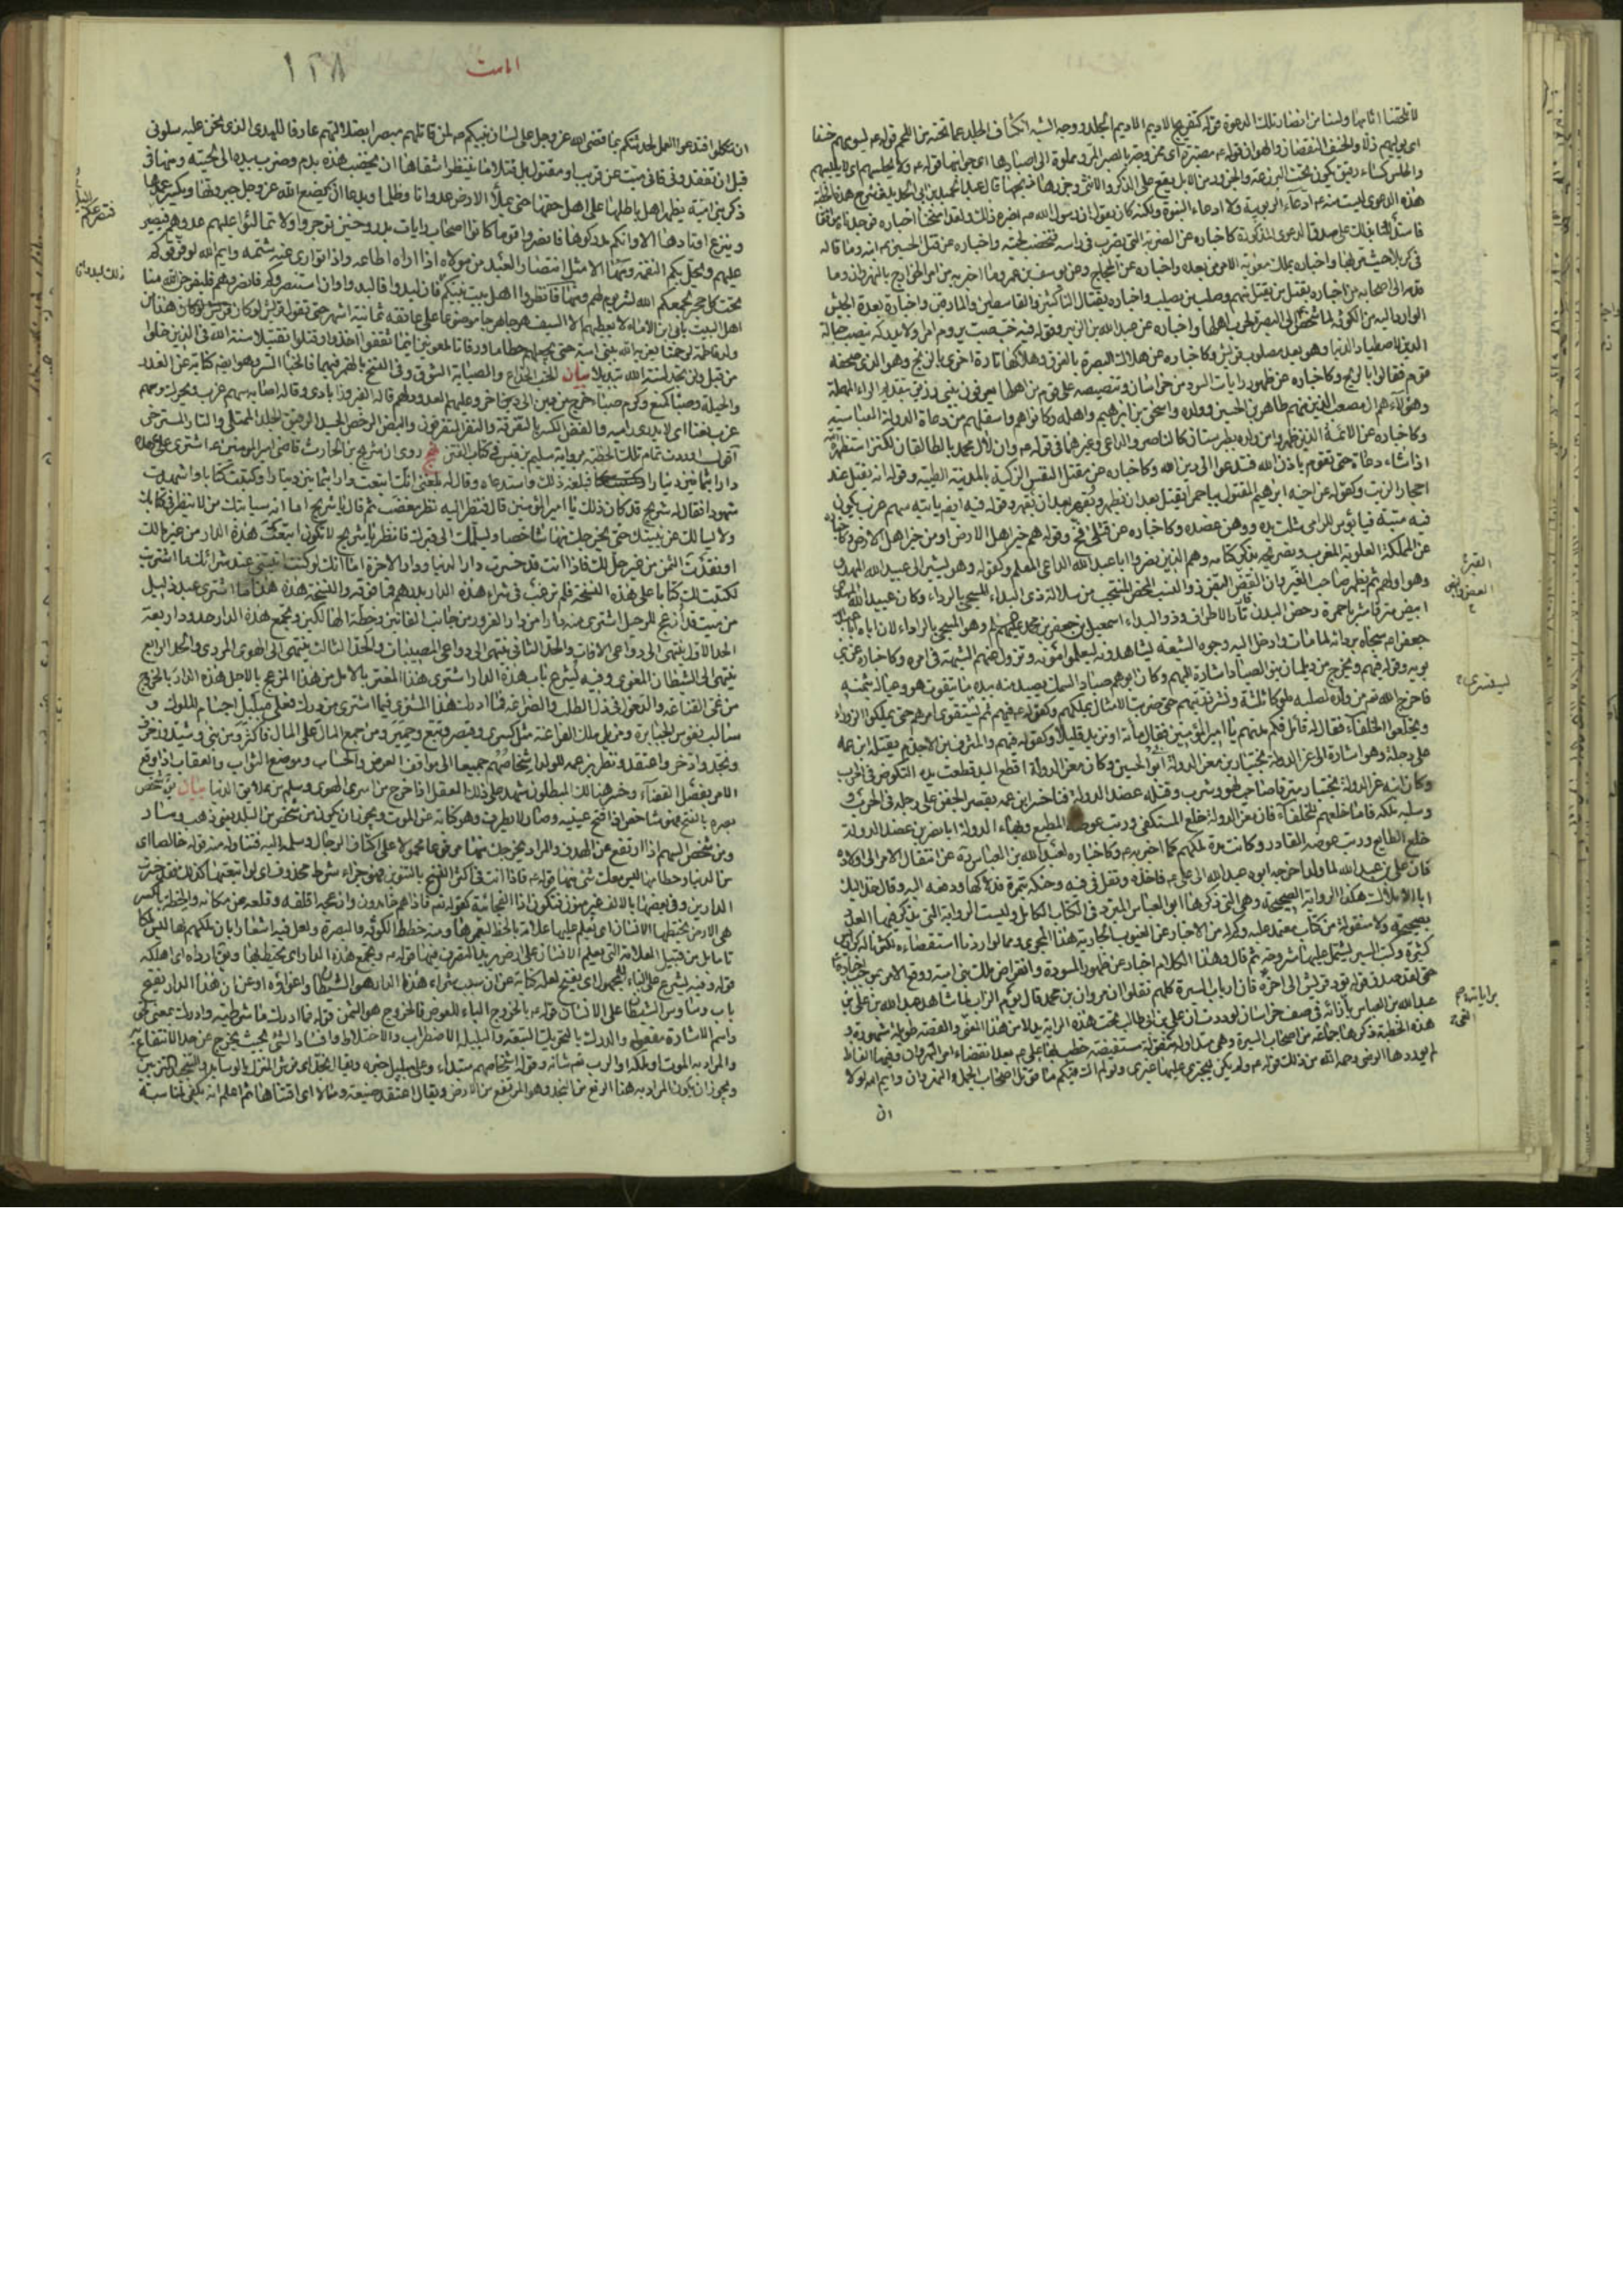 لا تلحقنا اثامها ولسنا من انصار تلك الدعوة قوله كتفريج الاديم الاديم الجلد ووجه الشبه انكشاف الجلد عما تحته من اللحم قوله يسومهم خسفا
اي يوليهم ذلا والخسف النقصان والهوان قوله مصبرة اي ممزوجة بالصبر المر او مملوة الى اصبارها اي جوانبها قوله ولا يحلسهم اي لا يلبسهم
والحلس كساء رقيق يكون تحت البرذعة والجزور من الابل يقع على الذكر والانثى وجزرها ذبحها قال عبد الحميد بن ابي الحديد في شرح هذه الخطبة
هذه الدعوى ليست منه ادعاء الربوبية ولا ادعاء النبوة ولكنه كان يقول ان رسول الله اخبره بذلك ولقد امتحنا اخباره فوجدناه موافقا
فاستدللنا بذلك على صدق الدعوى المذكورة كاخباره عن الضربة التي يضرب في راسه فتخضب لحيته واخباره عن قتل الحسين ابنه وما قاله
في كربلا حيث مر بها واخباره بملك معوية الامر من بعده واخباره عن الحجاج وعن يوسف بن عمر وما اخبر به من امر الخوارج بالنهروان وما
قدمه الى اصحابه من اخباره بقتل من يقتل منهم وصلب من يصلب واخباره بقتال الناكثين والقاسطين والمارقين واخباره بعدة الجيش
الوارد اليه من الكوفة لما شخص الى البصرة لحرب اهلها واخباره عن عبد الله بن الزبير وقوله فيه خب ضب يروم امرا ولا يدركه ينصب حبالة
الدين لاصطياد الدنيا وهو بعد مصلوب قريش وكاخباره عن هلاك البصرة بالغرق وهلاكها تارة اخرى بالزنج وهو الذي صحفه
قوم فقالوا بالريح وكاخباره عن ظهور رايات السود من خراسان وتنصيصه على قوم من اهلها يعرفون ببني رزيق بتقديم الراء المهملة
وهؤلاء هم ال مصعب الذين منهم طاهر بن الحسين وولده واسحق بن ابرهيم واهله وكانوا هم واسلافهم من دعاة الدولة العباسية
وكاخباره عن الائمة الذين ظهروا من ولده بطبرستان كالناصر والداعي وغيرهما في قوله وان لآل محمد بالطالقان لكنزا سيظهره
اذا شاء دعاة حتى تقوم باذن الله فتدعوا الى دين الله وكاخباره عن مقتل النفس الزكية بالمدينة الطيبة وقوله انه يقتل عند
احجار الزيت وكقوله عن اخيه ابرهيم المقتول بباخمرا يقتل بعد ان يظهر ويقهر بعد ان يقهر وقوله فيه ايضا ياتيه سهم غرب يكون
فيه منيته فيا بؤس للرامي شلت يده ووهن عضده وكاخباره عن قتلى فخ وقوله هم خير اهل الارض او من خير اهل الارض وكاخباره
عن المملكة العلوية بالمغرب وتصريحه بذكر كتامه وهم الذين نصروا ابا عبد الله الداعي المعلم وكقوله وهو يشير الى عبيد الله المهدي
وهو اولهم ثم يظهر صاحب القيروان الغض البض ذو النسب المحض المنتجب من سلالة ذي البداء المسجى بالرداء وكان عبيد الله المهدي
ابيض مترفا مشربا بحمرة رخص البدن تار الاطراف وذو البداء اسمعيل بن جعفر بن محمد وهو المسجى بالرداء لان اباه ابا عبد الله
جعفرا سجاه بردائه لما مات وادخل اليه وجوه الشيعة يشاهدونه ليعلموا موته وتزول عنهم الشبهة في امره وكاخباره عن بني
بويه وقوله فيهم ويخرج من ديلمان بنو الصياد اشارة اليهم وكان ابوهم صياد السمك يصيد منه بيده ما يتقوت هو وعياله بثمنه
فاخرج الله من ولده لصلبه ملوكا ثلثة ونشر ذريتهم حتى ضربت الامثال بملكهم وكقوله فيهم ثم يستقوى امرهم حتى يملكوا الزوراء
ويخلعوا الخلفاء فقال له قائل فكم مدتهم يا امير المؤمنين فقال مائة او تزيد قليلا وكقوله فيهم والمترف بن الاجذم يقتله ابن عمه
على دجلة وهو اشارة الى عز الدولة بختيار بن معز الدولة ابو الحسين وكان معز الدولة اقطع اليد قطعت يده للنكوص في الحرب
وكان ابنه عز الدولة بختيار مترفا صاحب لهو وشرب وقتله عضد الدولة فناخسرو ابن عمه بقصر الجص على دجلة في الحرب و
وسلبه ملكه فاما خلعهم للخلفاء فان معز الدولة خلع المستكفي ورتب عوضه المطيع وبهاء الدولة ابا نصر بن عضد الدولة
خلع الطايع ورتب عوضه القادر وكانت مدة ملكهم كما اخبر به وكاخباره لعبد الله بن العباس ره عن انتقال الامر الى اولاده
فان علي بن عبد الله لما ولد اخرجه ابوه عبد الله الى علي فاخذه وتفل في فيه وحنكه بتمرة قد لاكها ودفعه اليه وقال خذ اليك
ابا الاملاك هكذا الرواية الصحيحة وهي التي ذكرها ابو العباس المبرد في الكتاب الكامل وليست الرواية التي يذكر فيها العدد
بصحيحة ولا منقولة من كتاب معتمد عليه وكم له من الاخبار عن الغيوب الجارية هذا المجرى مما لو اردنا استقصاءه لكثر له كراريس
كثيرة وكتب السير يشتمل عليها مشروحة ثم قال وهذا الكلام اخبار عن ظهور المسودة وانقراض ملك بني امية ووقع الامر بموجب اخباره
حتى لقد صدق قوله تود قريش الى اخره فان ارباب السيرة كلهم نقلوا ان مروان بن محمد قال يوم الزاب لما شاهد عبد الله بن علي بن
عبد الله بن العباس بازائه في صف خراسان لوددت ان علي بن ابي طالب تحت هذه الراية بدلا من هذا الفتى والقصة طويلة مشهورة و
هذه الخطبة ذكرها جماعة من اصحاب السيرة وهي متداولة منقولة مستفيضة خطب بها علي بعد انقضاء امر النهروان وفيها الفاظ
لم يوردها الرضي رحمه الله من ذلك قوله ولم يكن ليجتري عليها غيري ولو لم اك فيكم ما قوتل اصحاب الجمل والنهروان وايم الله لولا
ان
١٢٨
ان تتكلوا فتدعوا العمل لحدثتكم بما قضى الله عز وجل على لسان نبيكم لمن قاتلهم مبصرا بضلالتهم عارفا للهدى الذي نحن عليه سلوني
قبل ان تفقدوني فاني ميت عن قريب او مقتول بل قتلا ما ينتظر اشقاها ان يخضب هذه بدم وضرب بيده الى لحيته ومنها في
ذكر بني امية يظهر اهل باطلها على اهل حقها حتى يملأ الارض عدوانا وظلما وبدعا الى ان يضع الله عز وجل جبروتها ويكسر عمدها
وينزع اوتادها الا وانكم مدركوها فانصروا قوما كانوا اصحاب رايات بدر وحنين توجروا ولا تمالئوا عليهم عدوهم فيصير
عليهم ويحل بكم النقمة ومنها الا مثل انتصار العبد من مولاه اذا راه اطاعه واذا توارى عنه شتمه وايم الله لو فرقوكم
تحت كل حجر لجمعكم الله لشر يوم لهم ومنها فانظروا اهل بيت نبيكم فان لبدوا فالبدوا وان استنصروكم فانصروهم فليفرجن الله منا
اهل البيت بابي ابن خيرة الاماء لا يعطيهم الا السيف هرجا هرجا موضوعا على عاتقه ثمانية اشهر حتى تقول قريش لو كان هذا من
ولد فاطمة لرحمنا يغريه الله ببني امية حتى يجعلهم حطاما ورفاتا ملعونين اينما ثقفوا اخذوا وقتلوا تقتيلا سنة الله في الذين خلوا
من قبل ولن تجد لسنة الله تبديلا بيان الخب الخداع والصبابة الشوق وفي الفتح بالنهر فيهما فالخبا السر وهو ايضا كناية عن الغدر
والحيلة وصبا كمنع وكرم صبا خرج من دين الى دين اخر وعليهم العدو دلهم قاله الفيروزابادي وقال اصابه سهم غرب ويحرك
دارا بثمانين دينارا فبلغه ذلك واستدعاه وقال له بلغني انك ابتعت دارا بثمانين دينارا وكتبت كتابا واشهدت
شهودا فقال له شريح قد كان ذلك يا امير المؤمنين قال فنظر اليه نظر مغضب ثم قال يا شريح اما انه سياتيك من لا ينظر في كتابك
ولا يسالك عن بينتك حتى يخرجك منها شاخصا ويسلمك الى قبرك خالصا فانظر يا شريح لا تكون ابتعت هذه الدار من غير مالك
او نقدت الثمن من غير حلك فاذا انت قد خسرت دار الدنيا ودار الاخرة اما انك لو كنت اتيتني عند شرائك ما اشتريت
لكتبت لك كتابا على هذه النسخة فلم ترغب في شراء هذه الدار بدرهم فما فوقه والنسخة هذه هذا ما اشترى عبد ذليل
من ميت قد ازعج للرحيل اشترى منه دارا من دار الغرور من جانب الفانين وخطة الهالكين وتجمع هذه الدار حدود اربعة
الحد الاول ينتهي الى دواعي الافات والحد الثاني ينتهي الى دواعي المصيبات والحد الثالث ينتهي الى الهوى المردي والحد الرابع
ينتهي الى الشيطان المغوي وفيه يشرع باب هذه الدار اشترى هذا المغتر بالامل من هذا المزعج بالاجل هذه الدار بالخروج
من عز القناعة والدخول في ذل الطلب والضراعة فما ادرك هذا المشتري فيما اشترى من درك فعلى مبلبل اجسام الملوك و
سالب نفوس الجبابرة ومزيل ملك الفراعنة مثل كسرى وقيصر وتبع وحمير ومن جمع المال على المال فاكثر ومن بنى وشيد وزخرف
ونجد وادخر واعتقد ونظر بزعمه للولد اشخاصهم جميعا الى موقف العرض والحساب وموضع الثواب والعقاب اذا وقع
الامر بفصل القضاء وخسر هنالك المبطلون شهد على ذلك العقل اذا خرج من اسر الهوى وسلم من علايق الدنيا بيان يق شخص
بصره بالفتح فهو شاخص اذا فتح عينيه وصار لا يطرف وهو كناية عن الموت ويجوز ان يكون من شخص من البلد يعني ذهب وسار
ومن شخص السهم اذا ارتفع عن الهدف والمراد يخرجك منها مرفوعا محمولا على اكتاف الرجال وسلمه اليه فتناوله منه قوله خالصا اي
من الدنيا وحطامها ليس معك شيء منها قوله فاذا انت في اكثر النسخ بالتنوين فهو جزاء شرط محذوف اي لو ابتعتها كذلك فقد خسرت
الدارين وفي بعضها بالالف غير منون فتكون اذا الفجائية كقوله تعالى فاذا هم خامدون وازعجه اقلقه وقلعه من مكانه والخطة بالكسر
هي الارض يختطها الانسان اي يعلم عليها علامة بالخط ليعمرها ومنه خطط الكوفة والبصرة ولعل فيه اشعارا بان ملكهم لها ليس ملكا
تاما بل من قبيل العلامة التي يعلم الانسان على ارض يريد التصرف فيها قوله وتجمع هذه الدار اي تحيط بها ويق ارداه اي اهلكه
قوله وفيه يشرع على البناء للمجهول اي يفتح لعله كناية عن ان سبب شراء هذه الدار هو الشيطان واغواؤه او عن ان هذه الدار تفتح
باب وساوس الشيطان على الانسان قوله بالخروج الباء للعوض فالخروج هو الثمن قوله فما ادرك ما شرطية وادرك بمعنى لحق
واسم الاشارة مفعوله والدرك بالتحريك التبعة والبلبلة الاضطراب والاختلاط وافساد الشيء بحيث يخرج عن حد الانتفاع به
والمراد به الموت او ملكه او الرب تعالى شانه وقوله اشخاصهم مبتداء وعلى مبلبل خبره
ويجوز ان يكون المراد به هنا الرفع من النجد وهو المرتفع من الارض ويقال اعتقد ضيعة ومالا اي اقتناها